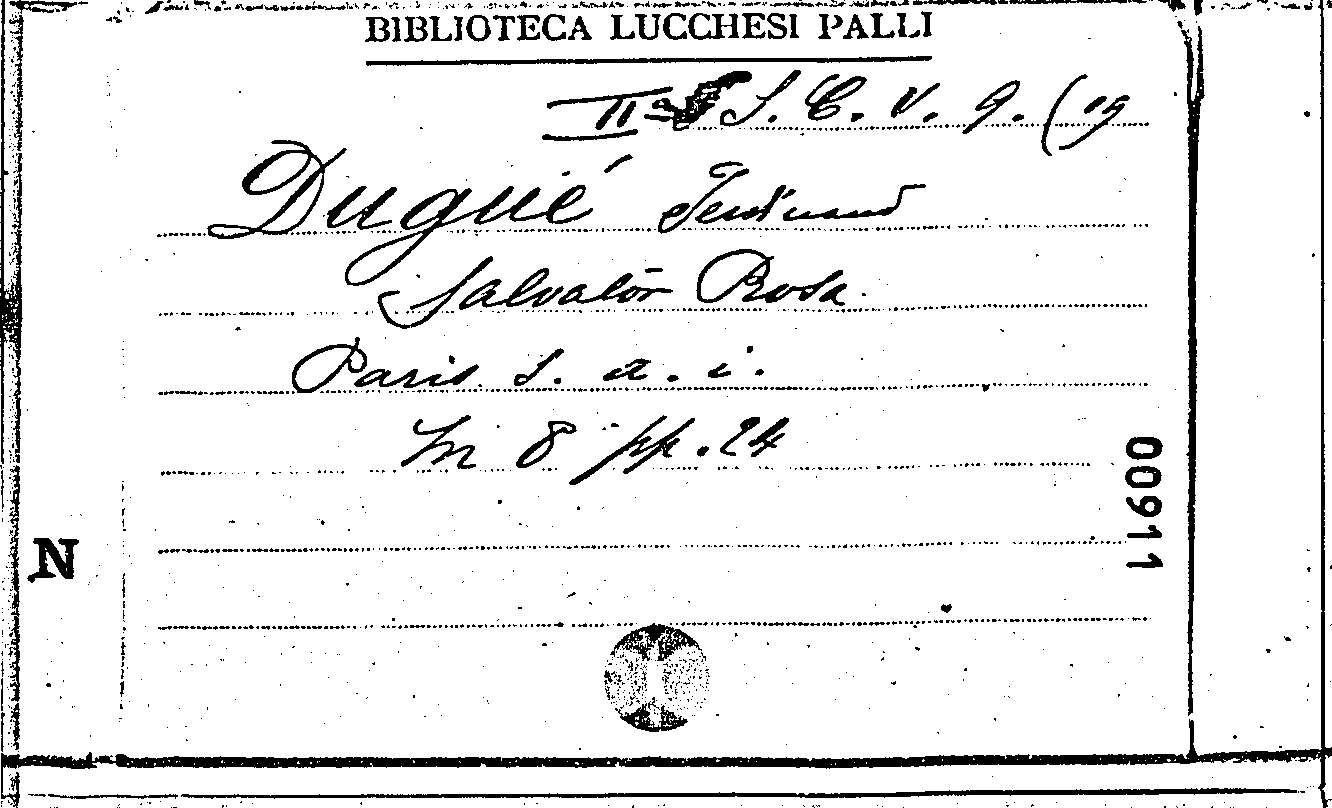 BIBLIOTECA LUCCHESI PALLI
IIa S. C. V. 9. (19
Dugué Ferdinand
Salvator Rosa
Paris s. a. i.
In 8 pp. 24
00911
N